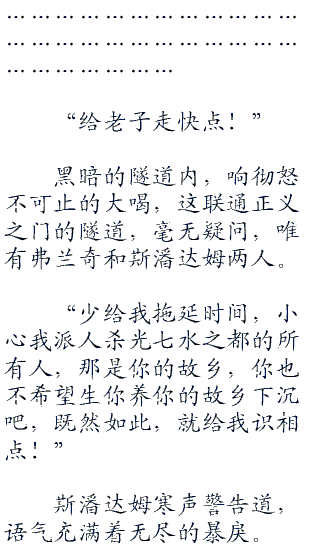 ………………………………
………………………………
…………………
“给老子走快点！”
黑暗的隧道内，响彻怒
不可止的大喝，这联通正义
之门的隧道，毫无疑问，唯
有弗兰奇和斯潘达姆两人。
“少给我拖延时间，小
心我派人杀光七水之都的所
有人，那是你的故乡，你也
不希望生你养你的故乡下沉
吧，既然如此，就给我识相
点！”
斯潘达姆寒声警告道，
语气充满着无尽的暴戾。